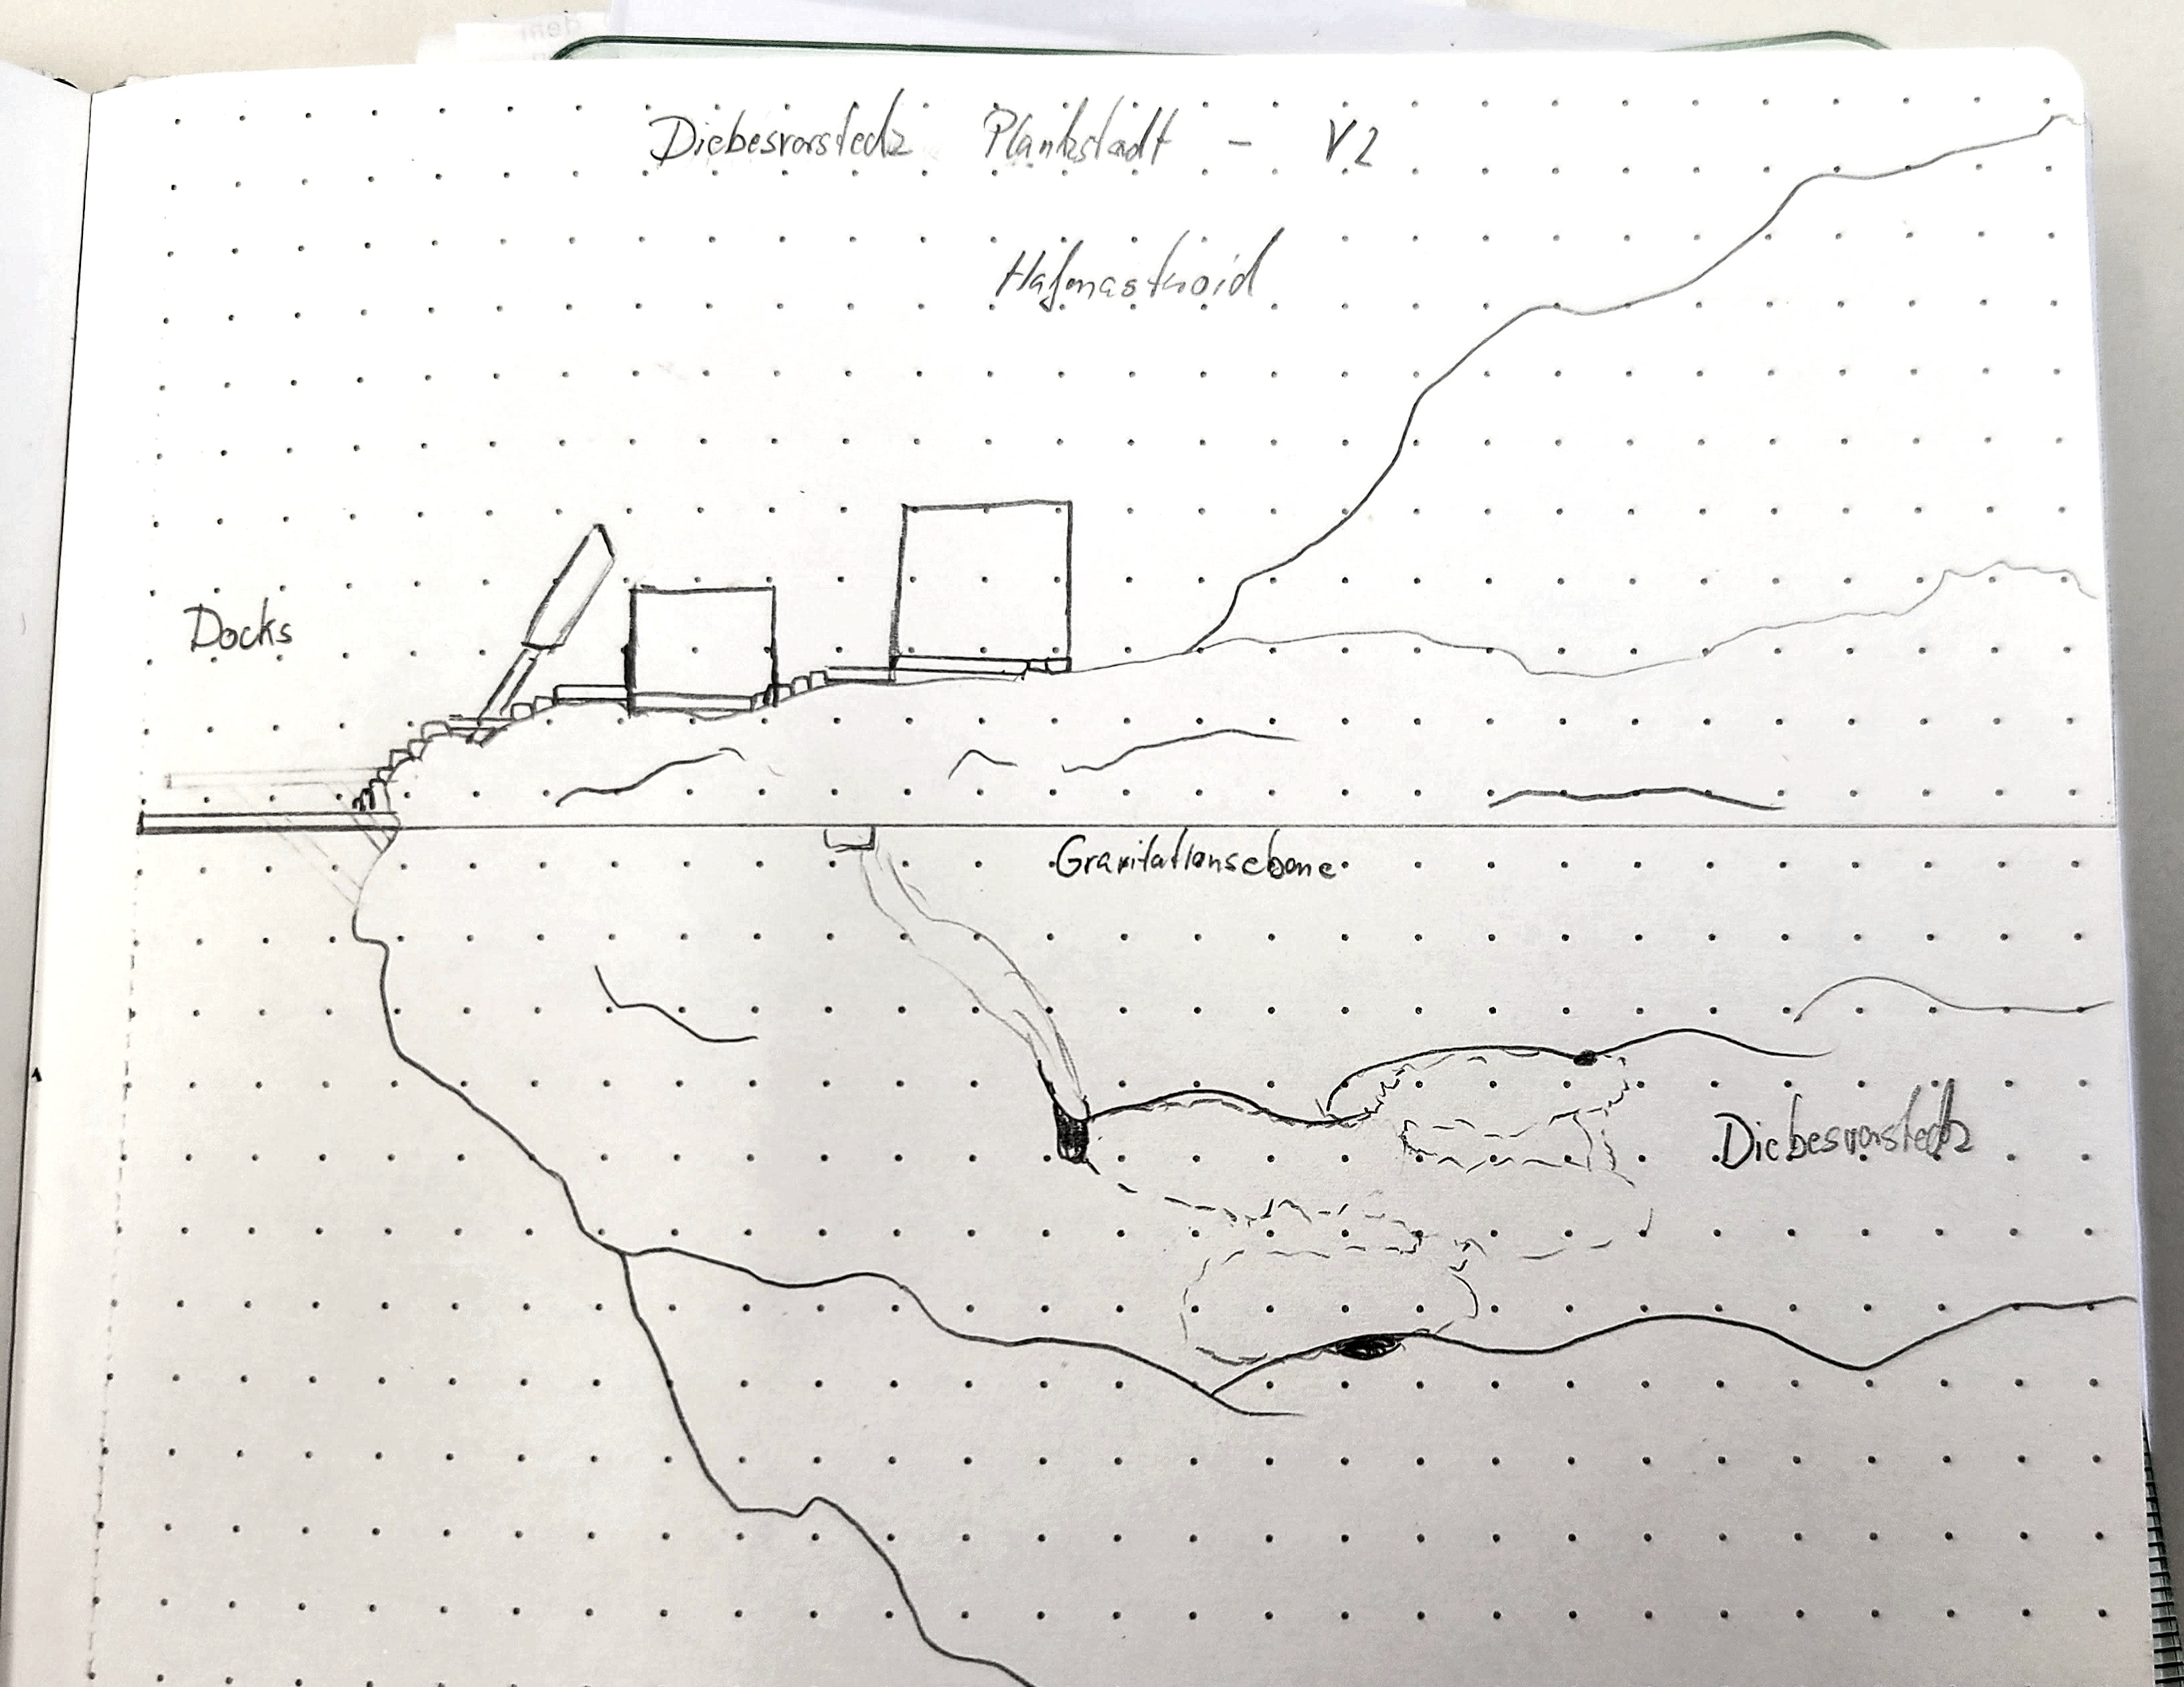 Diebesversteck Plankstadt - V2
Hafenastroid
Docks
Gravitationsebene
Diebesversteck